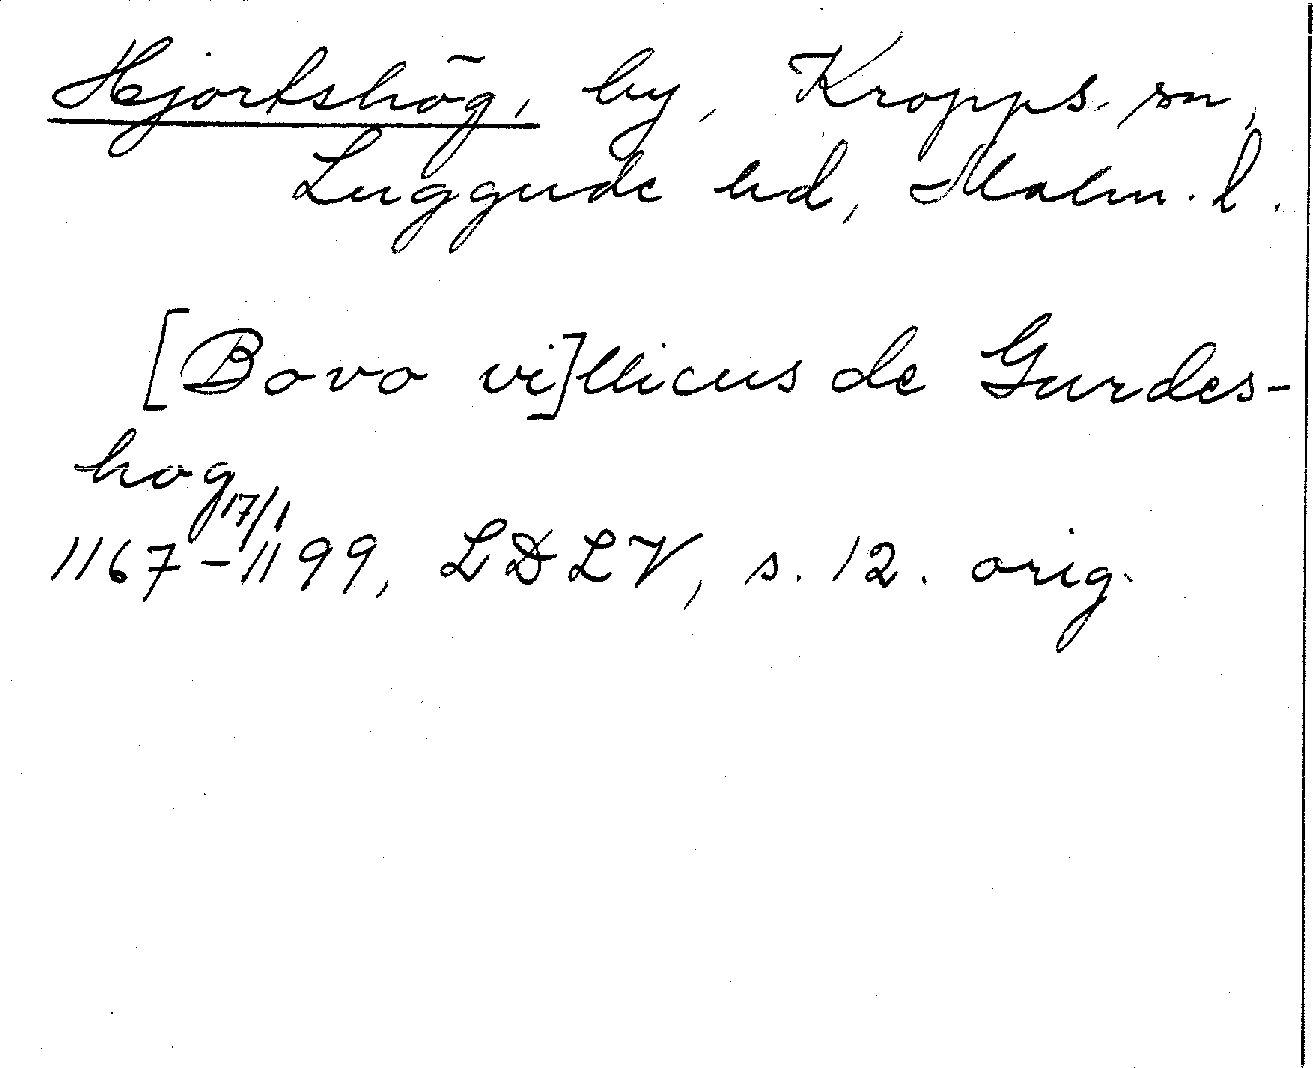 Hjortshög, by, Kropps sn,
Luggude hd, Malm. l.
[Bovo vi]llicus de Gurdes-
hog
1167-17/1 1199, LDLV, s. 12. orig.